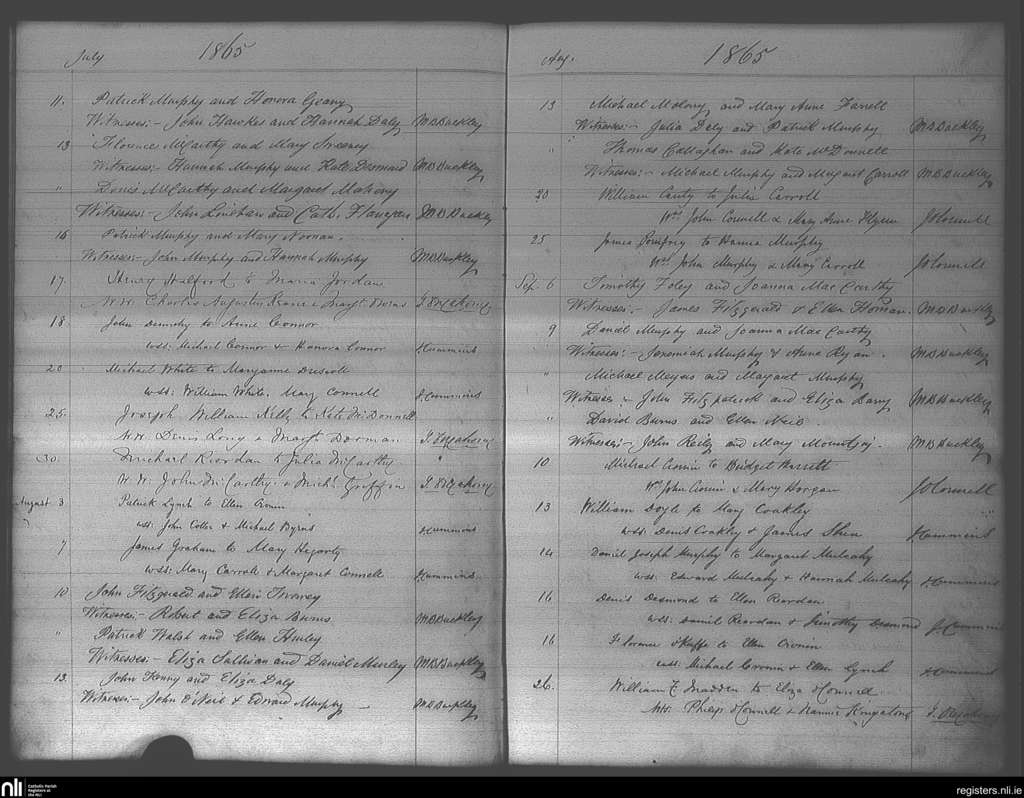 July 1865
11. Patrick Murphy and Honora Geany
Witnesses:- John Hawkes and Hannah Daly MB Buckley
13 Florence McCarthy and Mary Sweeney
Witnesses:- Hannah Murphy and Kate Desmond MB Buckley
" Denis McCarthy and Margaret Mahony
Witnesses:- John Linehan and Cath. Flanagan MB Buckley
16 Patrick Murphy and Mary Noonan.
Witnesses:- John Murphy and Hannah Murphy MB Buckley
17. Henry Halford to Maria Jordan
W.W. Charles Augustus Keane & Margt
18. John to Anne Connor
wss: Michael Connor & Honora Connor J Cummins
20 Michael White to Maryanne Driscoll
wss: William White, Mary Connell J. Cummins
25. Joseph William Kelly to Kate McDonnell
W.W. Denis Long & Margt Dorman
30. Michael Riordan to Julia McCarthy
W.W. John McCarthy & Michl Griffin
August 3 Patrick Lynch to Ellen Cronin
wss: John Coller & Michael Byrns J Cummins
7 James Graham to Mary Hegarty
wss: Mary Carroll & Margaret Connell J Cummins
10 John Fitzgerald and Ellen
Witnesses:- Robert and Eliza Burns MB Buckley
" Patrick Walsh and Ellen Hurley
Witnesses:- Eliza Sullivan and Daniel Hurley MB Buckley
13. John Kenny and Eliza Daly
Witnesses:- John O'Neil & Edward Murphy MB Buckley
Aug. 1865
13 Michael Molony and Mary Anne Farrell
Witnesses:- Julia Daly and Patrick Murphy MB Buckley
" Thomas Callaghan and Kate McDonnell
Witnesses:- Michael Murphy and Margaret Carroll MB Buckley
20 William Canty to Julia Carroll
Wss John Connell & Mary Anne Flynn
25 James Pomfrey to Hanna Murphy
Wss John Murphy & Mary Carroll
Sep. 6 Timothy Foley and Joanna Mac Carthy
Witnesses:- James Fitzgerald & Ellen MB Buckley
9 Danl Murphy and Joanna Mac Carthy
Witnesses:- Jeremiah Murphy & Anne Ryan. MB Buckley
" Michael Meyers and Margaret Murphy
Witnesses:- John Fitzpatrick and Eliza Barry MB Buckley
" David Burns and Ellen Neil.
Witnesses:- John Reily and Mary Mountjoy. MB Buckley
10 Michael Cronin to Bridget
Wss John Cronin & Mary Horgan
13 William Doyle to Mary Coakley
wss: Denis Coakley & James Shea J Cummins
14 Daniel Joseph Murphy to Margaret Mulcahy
wss: Edward Mulcahy & Hannah Mulcahy J Cummins
16 Denis Desmond to Ellen Reardan
wss: Daniel Reardan & Timothy Desmond J Cummins
16 Florence O'Keeffe to Ellen Cronin
wss: Michael Cronin & Ellen Lynch J Cummins
26. William F. Madden to Eliza O'Connell
WW. Philip O'Connell & Nannie Kingston
nli Catholic Parish Registers at the NLI
registers.nli.ie